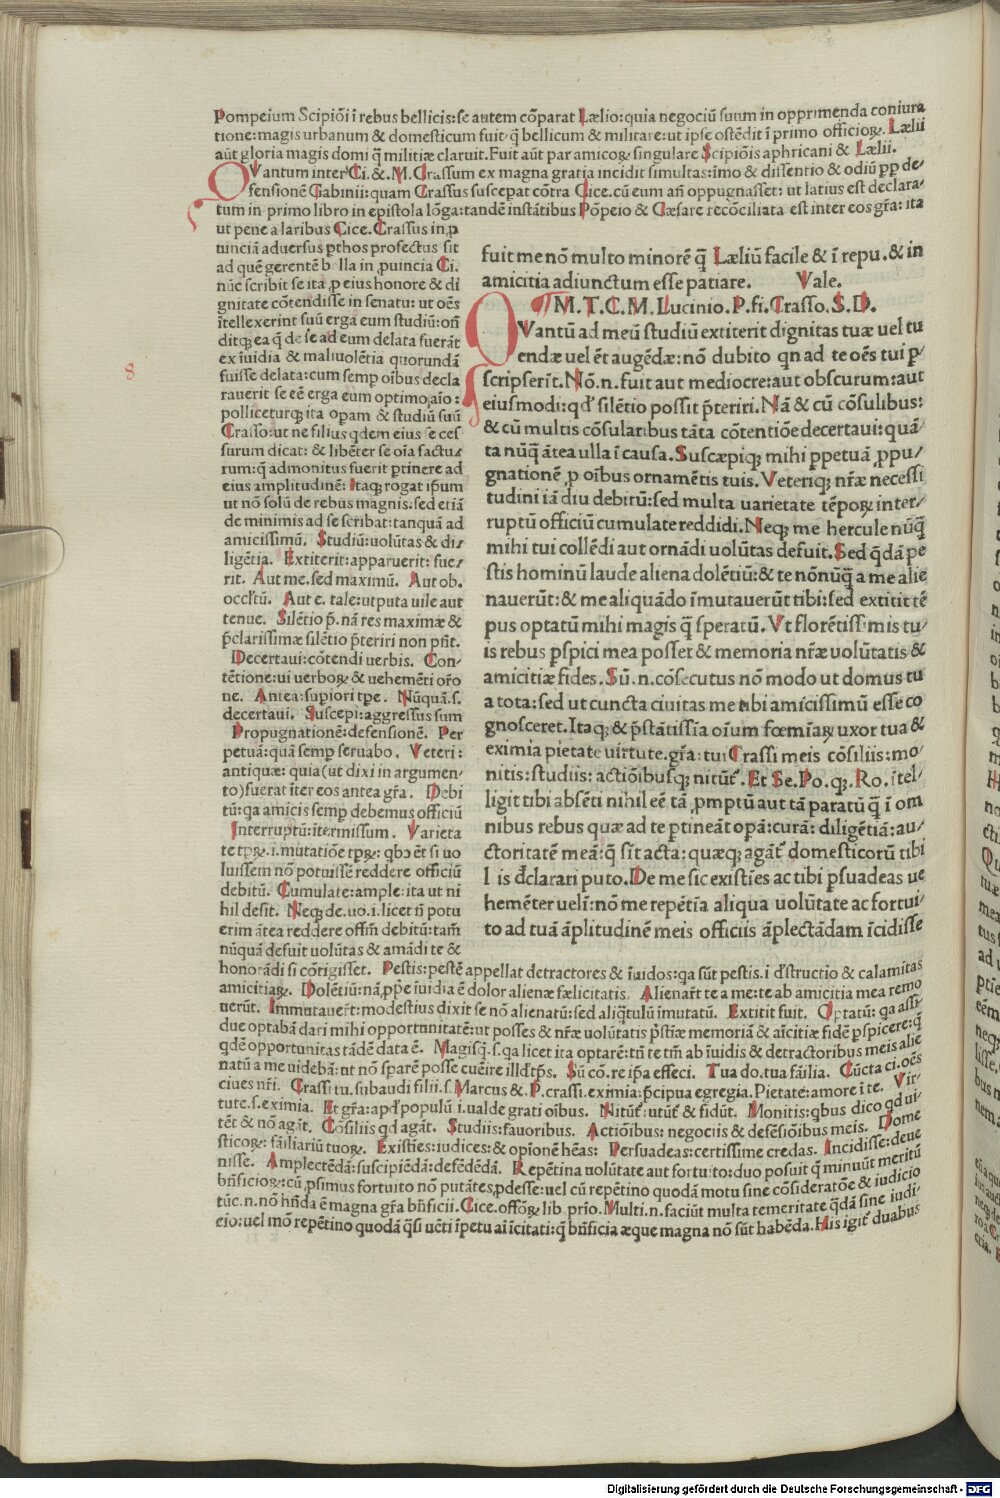 Pompeium Scipiōi ī rebus bellicis: se autem cōparat Lælio: quia negociū suum in opprimenda coniura
tione: magis urbanum & domesticum fuit q̄ bellicum & militare: ut ipse ostēdit ī primo officioꝝ. Lælii
aūt gloria magis domi q̄ militiæ claruit. Fuit aūt par amicoꝝ singulare Scipiōis aphricani & Lælii.
QVantum inter Ci. &. M. Crassum ex magna gratia incidit simultas: īmo & dissentio & odiū ꝓp de/
fensionē Gabinii: quam Crassus susceꝑat cōtra Cice. cū eum an̄ oppugnasset: ut latius est declara/
tum in primo libro in epistola lōga: tandē instātibus Pōpeio & Cæsare recōciliata est inter eos gr̄a: ita
ut pene a laribus Cice. Crassus in ꝓ
uinciā aduersus ꝑthos profectus sit
ad quē gerentē b lla in ꝓuincia Ci.
nūc scribit se ita ꝓ eius honore & di
gnitate cōtendisse in senatu: ut oēs
ītellexerint suū erga eum studiū: oñ
ditqꝫ ea q̄ de se ad eum delata fuerāt
ex īuidia & maliuolētia quorundā
fuisse delata: cum semꝑ oībus decla
rauerit se eē erga eum optimo aīo:
polliceturqꝫ ita oꝑam & studiū suū
Crasso: ut ne filius qdem eius se ces
surum dicat: & libēter se oīa factu/
rum: q̄ admonitus fuerit ꝑtinere ad
eius amplitudinē: Itaqꝫ rogat ip̄um
ut nō solū de rebus magnis: sed etiā
de minimis ad se scribat: tanquā ad
amicissimū. Studiū: uolūtas & di/
ligētia. Extiterit: apparuerit: fue/
rit. Aut me. sed maximū. Aut ob.
occl̄tū. Aut e. tale: utputa uile aut
tenue. Silētio p̄. nā res maximæ &
p̄clarissimæ silētio p̄teriri non pn̄t.
Decertaui: cōtendi uerbis. Con/
tētione: ui uerboꝝ & uehemēti or̄o
ne. Antea: suꝑiori tꝑe. Nūquā. s.
decertaui. Suscepi: aggressus sum
Propugnationē: defensionē. Per
petuā: quā semꝑ seruabo. Veteri:
antiquæ: quia (ut dixi in argumen/
to) fuerat īter eos antea gr̄a. Debi
tū: qa amicis semꝑ debemus officiū
Interruptū: itermissum. Varieta
te tꝑꝝ. i. mutatiōe tꝑꝝ: qbꝫ ēt si uo
luissem nō potuissē reddere officiū
debitū. Cumulate: ample: ita ut ni
hil desit. Neqꝫ de. uo. i. licet n̄ potu
erim ātea reddere offm̄ debitū: tam̄
nūquā defuit uolūtas & amādi te &
honorādi si cōtigisset. Pestis: pestē appellat detractores & īuidos: qa sūt pestis. i d̄structio & calamitas
amicitiaꝝ. Dolētiū: nā ꝓp̄e īuidia ē dolor alienæ fælicitatis. Alienar̄t te a me: te ab amicitia mea remo
uerūt. Immutauer̄t: modestius dixit se nō alienatū: sed aliq̄tulū īmutatū. Extitit fuit. Optatū: qa assi
due optabā dari mihi opportunitatē: ut posses & nr̄æ uolūtatis p̄stīæ memoriā & aīcitiæ fidē ꝑspicere: q̄
qdē opportunitas tādē data ē. Magisq̄. s. qa licet ita optarē: tn̄ te tm̄ ab īuidis & detractoribus meis alie
natū a me uidebā: ut nō sparē posse euēire illd̄ tp̄s. Sū cō. re ip̄a effeci. Tua do. tua fāilia. Cūcta ci. oēs
ciues nr̄i. Crassi tu. subaudi filii. s. Marcus & P. crassi. eximia: p̄cipua egregia. Pietate: amore ī te. Vir/
tute. s. eximia. Et gr̄a: apd̄ populū i. ualde grati oībus. Nitūt̄: utūt̄ & fidūt. Monitis: qbus dico qd ui/
tēt & nō agāt. Cōsiliis qd agāt. Studiis: fauoribus. Actiōibus: negociis & defēsiōibus meis. Dome
sticoꝝ: fāiliariū tuoꝝ. Existīes: iudices: & opīonē hēas: Persuadeas: certissime credas. Incidisse: deue
nisse. Amplectēdā: suscipiēdā: defēdēdā. Repētina uolūtate aut fortuito: duo posuit q̄ minuūt meritū
bn̄ficioꝝ: cū ꝓsimus fortuito nō putātes ꝓdesse: uel cū repētino quodā motu sine cōsideratōe & iudicio
tūc. n. nō hn̄da ē magna gr̄a bn̄ficii. Cice. offoꝝ lib. prīo. Multi. n. faciūt multa temeritate q̄dā sine iudi/
cio: uel mō repētino quodā q̄si uēti īpetu aī īcitati: q̄ bn̄ficia æque magna nō sūt habēda. His igit̄ duabus
fuit me nō multo minorē q̄ Læliū facile & ī repu. & in
amicitia adiunctum esse patiare. Vale.
¶ M. T. C. M. Lucinio. P. fi. Crasso. S. D.
QVantū ad meū studiū extiterit dignitas tuæ uel tu
endæ uel ēt augēdæ: nō dubito qn ad te oēs tui ꝑ
scripserīt. Nō. n. fuit aut mediocre: aut obscurum: aut
eiusmodi: qd̄ silētio possit p̄teriri. Nā & cū cōsulibus:
& cū multis cōsularibus tāta cōtentiōe decertaui: quā/
ta nūq̄ ātea ulla ī causa. Suscæpiqꝫ mihi ꝑpetuā ꝓpu/
gnationē ꝓ oībus ornamētis tuis. Veteriqꝫ nr̄æ necessi
tudini iā diu debitū: sed multa uarietate tēpoꝝ inter/
ruptū officiū cumulate reddidi. Neqꝫ me hercule nūq̄
mihi tui collēdi aut ornādi uolūtas defuit. Sed q̄dā pe
stis hominū laude aliena dolētiū: & te nōnūq̄ a me alie
nauerūt: & me aliquādo īmutauerūt tibi: sed extitit tē
pus optatū mihi magis q̄ speratū. Vt florētissimis tu/
is rebus ꝑspici mea posset & memoria nr̄æ uolūtatis &
amicitiæ fides. Sū. n. cōsecutus nō modo ut domus tu
a tota: sed ut cuncta ciuitas me tibi amicissimū esse co
gnosceret. Itaqꝫ & p̄stātissīa oīum fœmīaꝝ uxor tua &
eximia pietate uirtute. gr̄a: tui Crassi meis cōsiliis: mo/
nitis: studiis: actiōibusq̄ꝫ nitūt̄. Et Se. Po. qꝫ. Ro. ītel/
ligit tibi absēti nihil eē tā ꝓmptū aut tā paratū q̄ ī om
nibus rebus quæ ad te ꝑtineāt oꝑā: curā: diligētiā: au/
ctoritatē meā: q̄ sīt acta: quæqꝫ agāt̄ domesticorū tibi
l is d̄clarari puto. De me sic existīes ac tibi ꝑsuadeas ue
hemēter uelī: nō me repētīa aliqua uolūtate ac fortui/
to ad tuā āplitudinē meis officiis āplectādam īcidisse
8
Digitalisierung gefördert durch die Deutsche Forschungsgemeinschaft - DFG